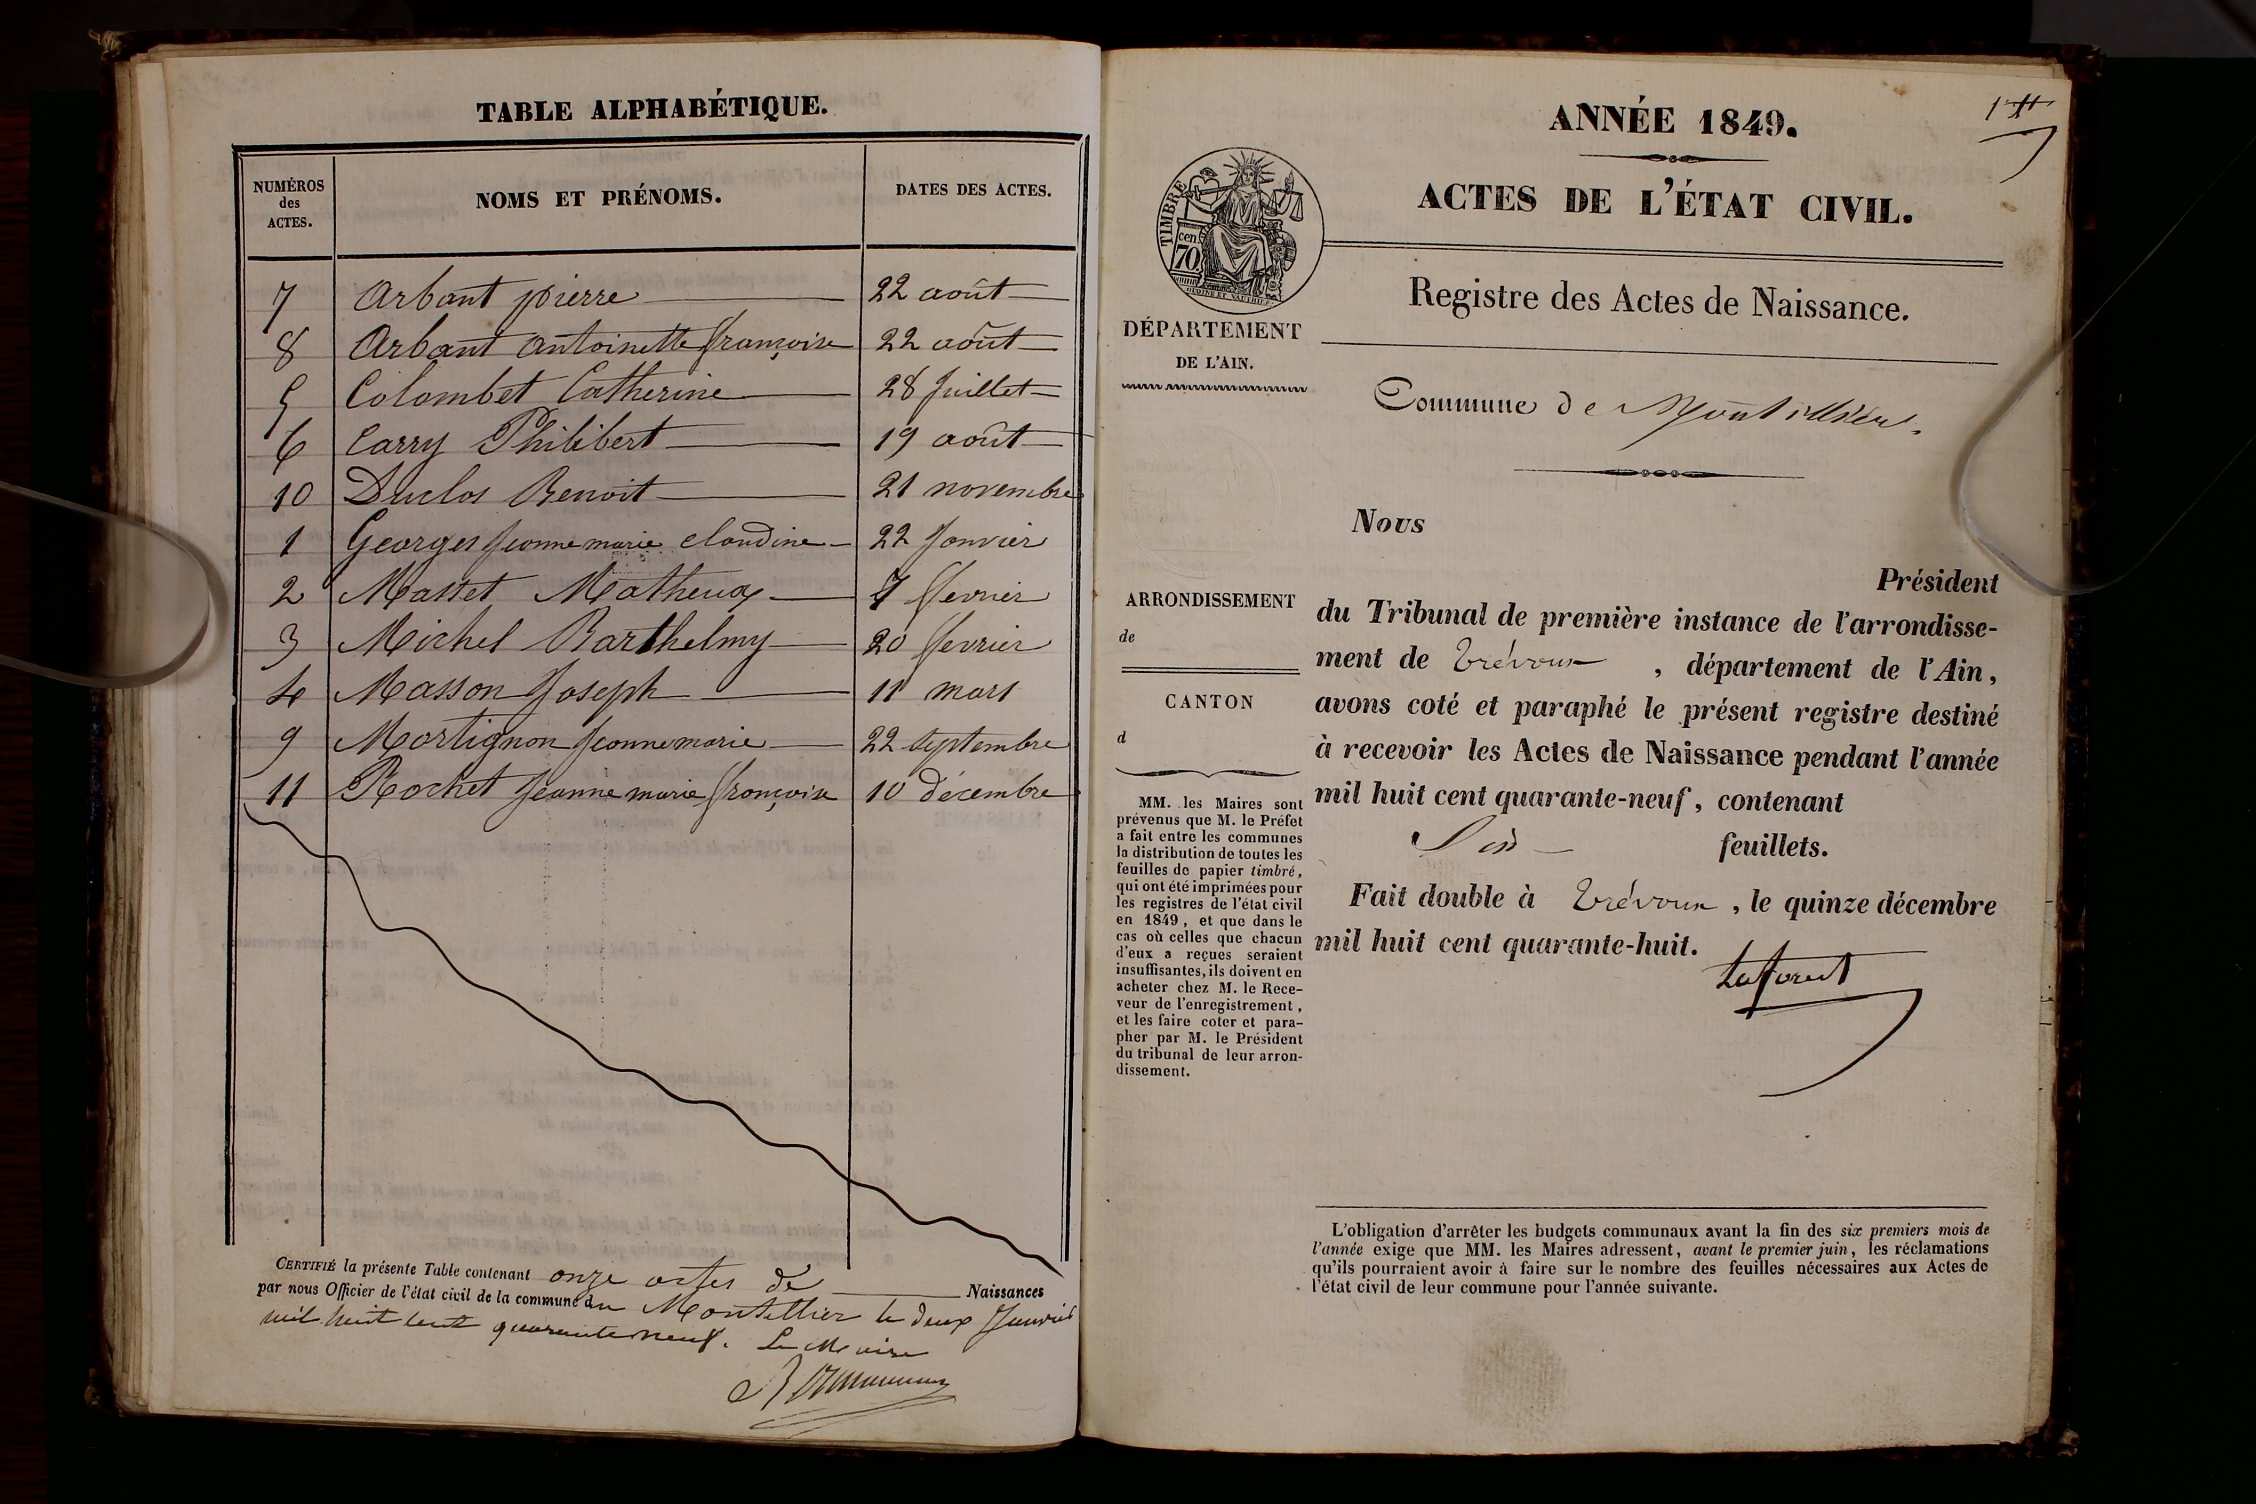 TABLE ALPHABÉTIQUE.
NUMÉROS
des
ACTES.
NOMS ET PRÉNOMS.
DATES DES ACTES.
7 Arbant pierre 22 août
8 Arbant antoinette françoise 22 août
5 Colombet Catherine 28 Juillet
6 Carry Philibert 19 août
10 Duclos Benoit 21 novembre
1 Georges Jeanne marie claudine 22 Janvier
2 Mastet Matheux 7 fevrier
3 Michel Barthelmy 20 fevrier
4 Masson Joseph 11 mars
9 Mortignon Jeanne marie 22 septembre
11 Rochet Jeanne marie françoise 10 décembre
CERTIFIÉ la présente Table contenant onze actes de Naissances
par nous Officier de l'état civil de la commune du Montellier le deux Janvier
mil huit cent quarante neuf. Le Maire
ANNÉE 1849.
ACTES DE L'ÉTAT CIVIL.
TIMBRE
cen
70
Registre des Actes de Naissance.
DÉPARTEMENT
DE L'AIN.
Commune de
Nous
Président
du Tribunal de première instance de l'arrondisse-
ment de Trévoux, département de l'Ain,
avons coté et paraphé le présent registre destiné
à recevoir les Actes de Naissance pendant l'année
mil huit cent quarante-neuf, contenant
feuillets.
Fait double à Trévoux, le quinze décembre
mil huit cent quarante-huit.
Laforest
ARRONDISSEMENT
de
CANTON
d
MM. les Maires sont
prévenus que M. le Préfet
a fait entre les communes
la distribution de toutes les
feuilles de papier timbré,
qui ont été imprimées pour
les registres de l'état civil
en 1849, et que dans le
cas où celles que chacun
d'eux a reçues seraient
insuffisantes, ils doivent en
acheter chez M. le Rece-
veur de l'enregistrement,
et les faire coter et para-
pher par M. le Président
du tribunal de leur arron-
dissement.
L'obligation d'arrêter les budgets communaux avant la fin des six premiers mois de
l'année exige que MM. les Maires adressent, avant le premier juin, les réclamations
qu'ils pourraient avoir à faire sur le nombre des feuilles nécessaires aux Actes de
l'état civil de leur commune pour l'année suivante.